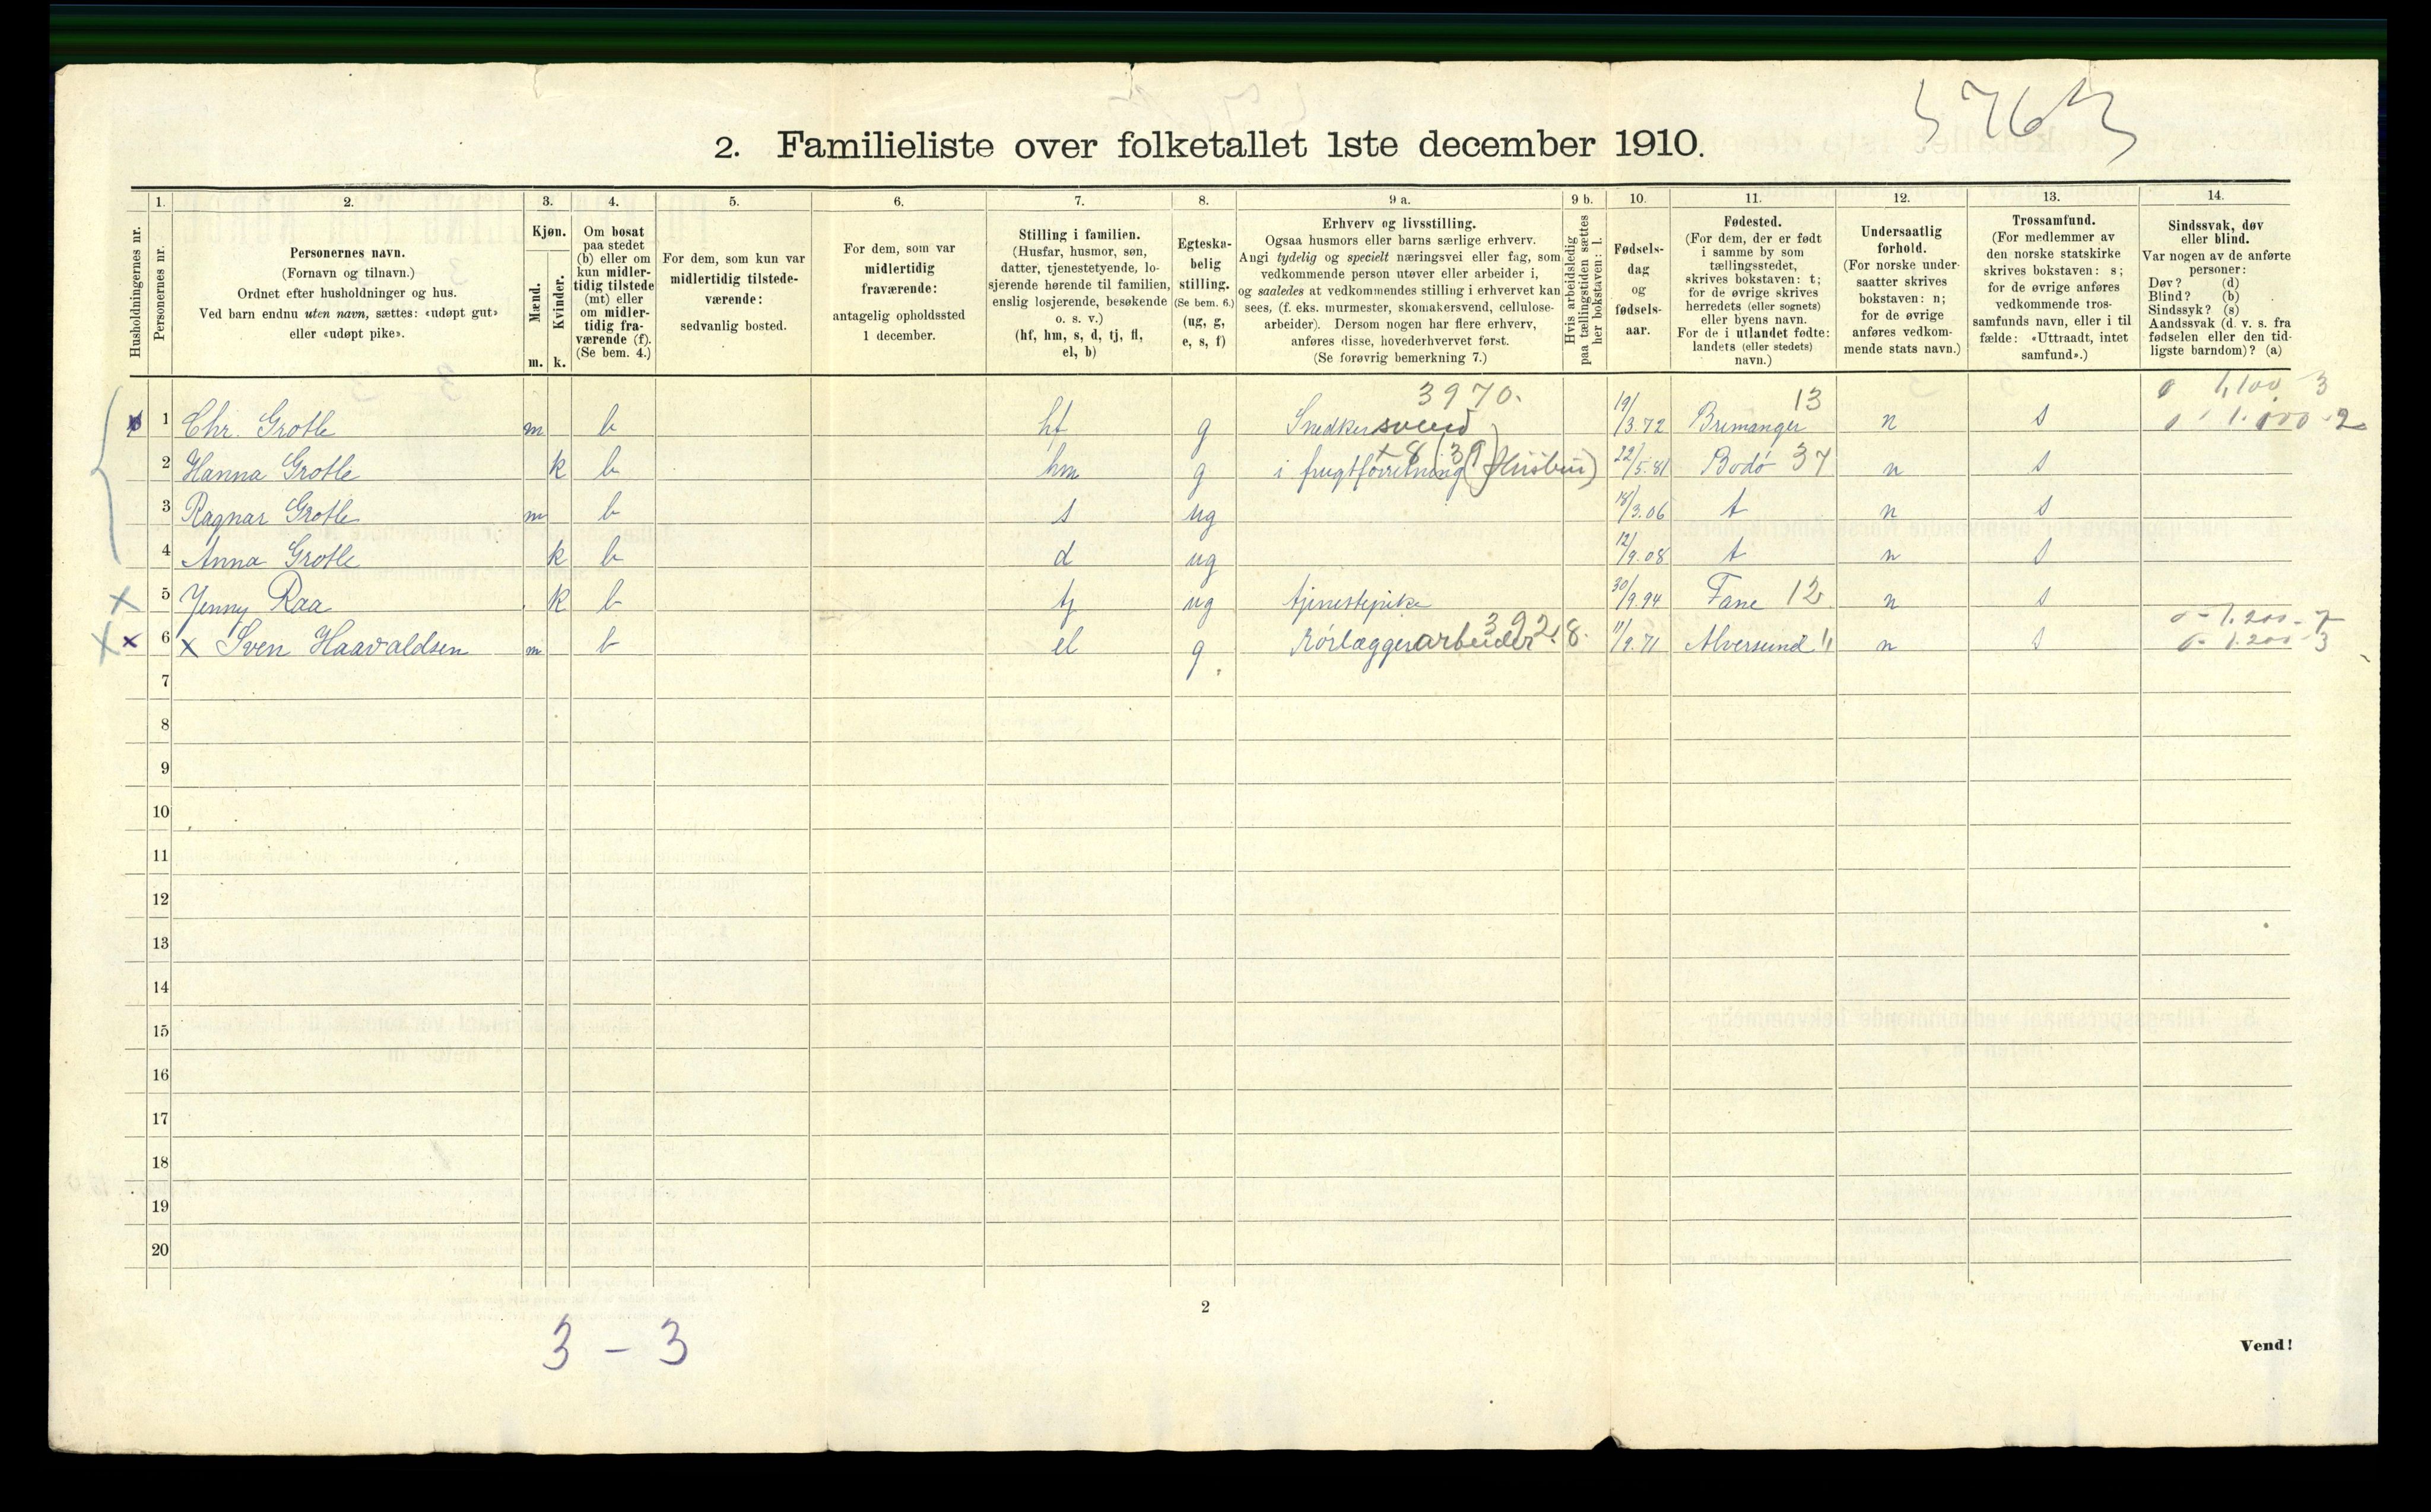 5763
2. Familieliste over folketallet 1ste december 1910.
1. 2. 3. 4. 5. 6. 7. 8. 9 a. 9 b. 10. 11. 12. 13. 14.
Husholdningernes nr.
Personernes nr.
Personernes navn.
(Fornavn og tilnavn.)
Ordnet efter husholdninger og hus.
Ved barn endnu uten navn, sættes: «udøpt gut»
eller «udøpt pike».
Kjøn.
Mænd.
Kvinder.
m. k.
Om bosat
paa stedet
(b) eller om
kun midler-
tidig tilstede
(mt) eller
om midler-
tidig fra-
værende (f).
(Se bem. 4.)
For dem, som kun var
midlertidig tilstede-
værende:
sedvanlig bosted.
For dem, som var
midlertidig
fraværende:
antagelig opholdssted
1 december.
Stilling i familien.
(Husfar, husmor, søn,
datter, tjenestetyende, lo-
sjerende hørende til familien,
enslig losjerende, besøkende
o. s. v.)
(hf, hm, s, d, tj, fl,
el, b)
Egteska-
belig
stilling.
(Se bem. 6.)
(ug, g,
e, s, f)
Erhverv og livsstilling.
Ogsaa husmors eller barns særlige erhverv.
Angi tydelig og specielt næringsvei eller fag, som
vedkommende person utøver eller arbeider i,
og saaledes at vedkommendes stilling i erhvervet kan
sees, (f. eks. murmester, skomakersvend, cellulose-
arbeider). Dersom nogen har flere erhverv,
anføres disse, hovederhvervet først.
(Se forøvrig bemerkning 7.)
Hvis arbeidsledig
paa tællingstiden sættes
her bokstaven: l.
Fødsels-
dag
og
fødsels-
aar.
Fødested.
(For dem, der er født
i samme by som
tællingsstedet,
skrives bokstaven: t;
for de øvrige skrives
herredets (eller sognets)
eller byens navn.
For de i utlandet fødte:
landets (eller stedets)
navn.)
Undersaatlig
forhold.
(For norske under-
saatter skrives
bokstaven: n;
for de øvrige
anføres vedkom-
mende stats navn.)
Trossamfund.
(For medlemmer av
den norske statskirke
skrives bokstaven: s;
for de øvrige anføres
vedkommende tros-
samfunds navn, eller i til
fælde: «Uttraadt, intet
samfund».)
Sindssvak, døv
eller blind.
Var nogen av de anførte
personer:
Døv? (d)
Blind? (b)
Sindssyk? (s)
Aandssvak (d. v. s. fra
fødselen eller den tid-
ligste barndom)? (a)
3970. 13 0 1,100 3
1 Chr. Grotle m b hf g Snedkersvend 19/3.72 Bremanger n s 1.000 - 2
2 Hanna Grotle k b hm g i frugtforretning (Husbru) 22/5.81 Bodø 37 n s
3 Ragnar Grotle m b s ug 18/3.06 t n s
4 Anna Grotle k b d ug 12/9.08 t n s
5 Jenny Raa k b tj ug tjenestepike 30/9.94 Fane 12 n s
392.8. 0 - 1.200 - 7
6 x Sven Haavaldsen m b el g Rørlæggerarbeider 11/9.71 Alversund 11 n s 0 - 1.200 - 3
7
8
9
10
11
12
13
14
15
16
17
18
19
20
2
3 - 3
Vend!